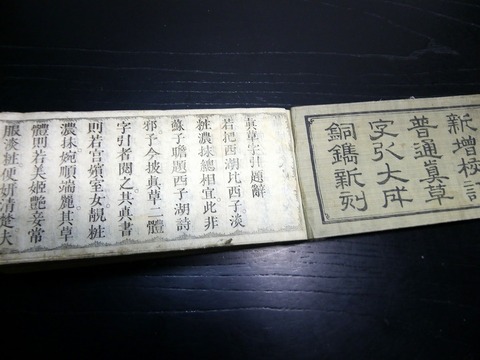 新增校訂
普通眞草
字引大成
銅鐫新刻
眞草字引題辭
若把西湖比西子淡
粧濃抹總相宜此非
蘇子瞻題西子湖詩
邪予今披眞草一體
字引者閱之其眞書
則若宮嬪室女靚粧
濃抹婉順端麗其草
體則若美姬艶妾常
服淡粧便妍清楚